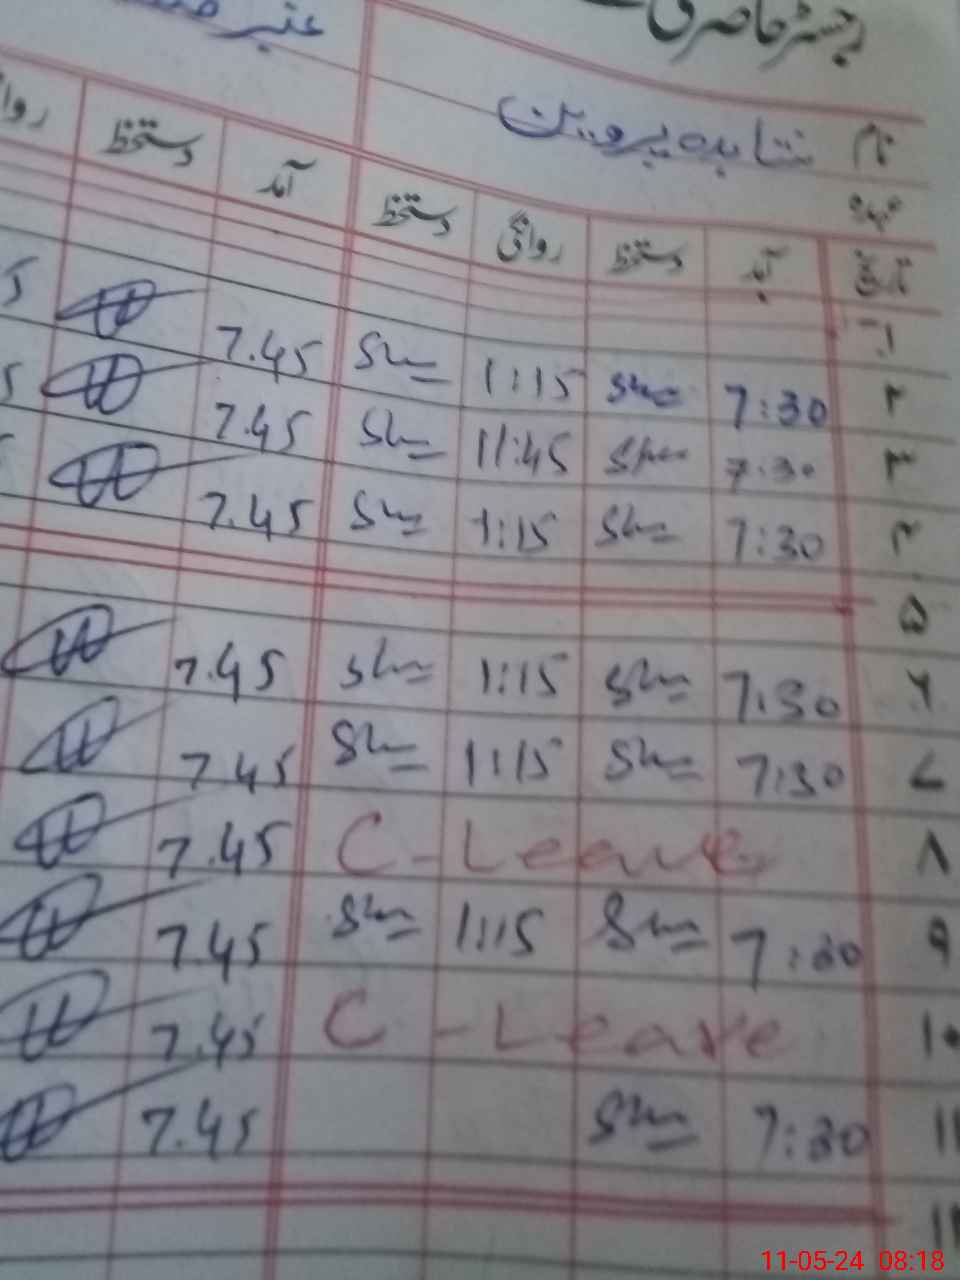 رجسٹر حاضری
نام شاہدہ پروین عنبر
عہدہ
تاریخ آمد دستخط روانگی دستخط آمد دستخط
۱
۲ 7:30 1:15 7.45
۳ 7:30 11:45 7.45
۴ 7:30 1:15 7.45
۵
۶ 7:30 1:15 7.45
۷ 7:30 1:15 7.45
۸ C-Leave 7.45
۹ 7:30 1:15 7.45
۱۰ C-Leave 7.45
۱۱ 7:30 7.45
۱۲
11-05-24 08:18